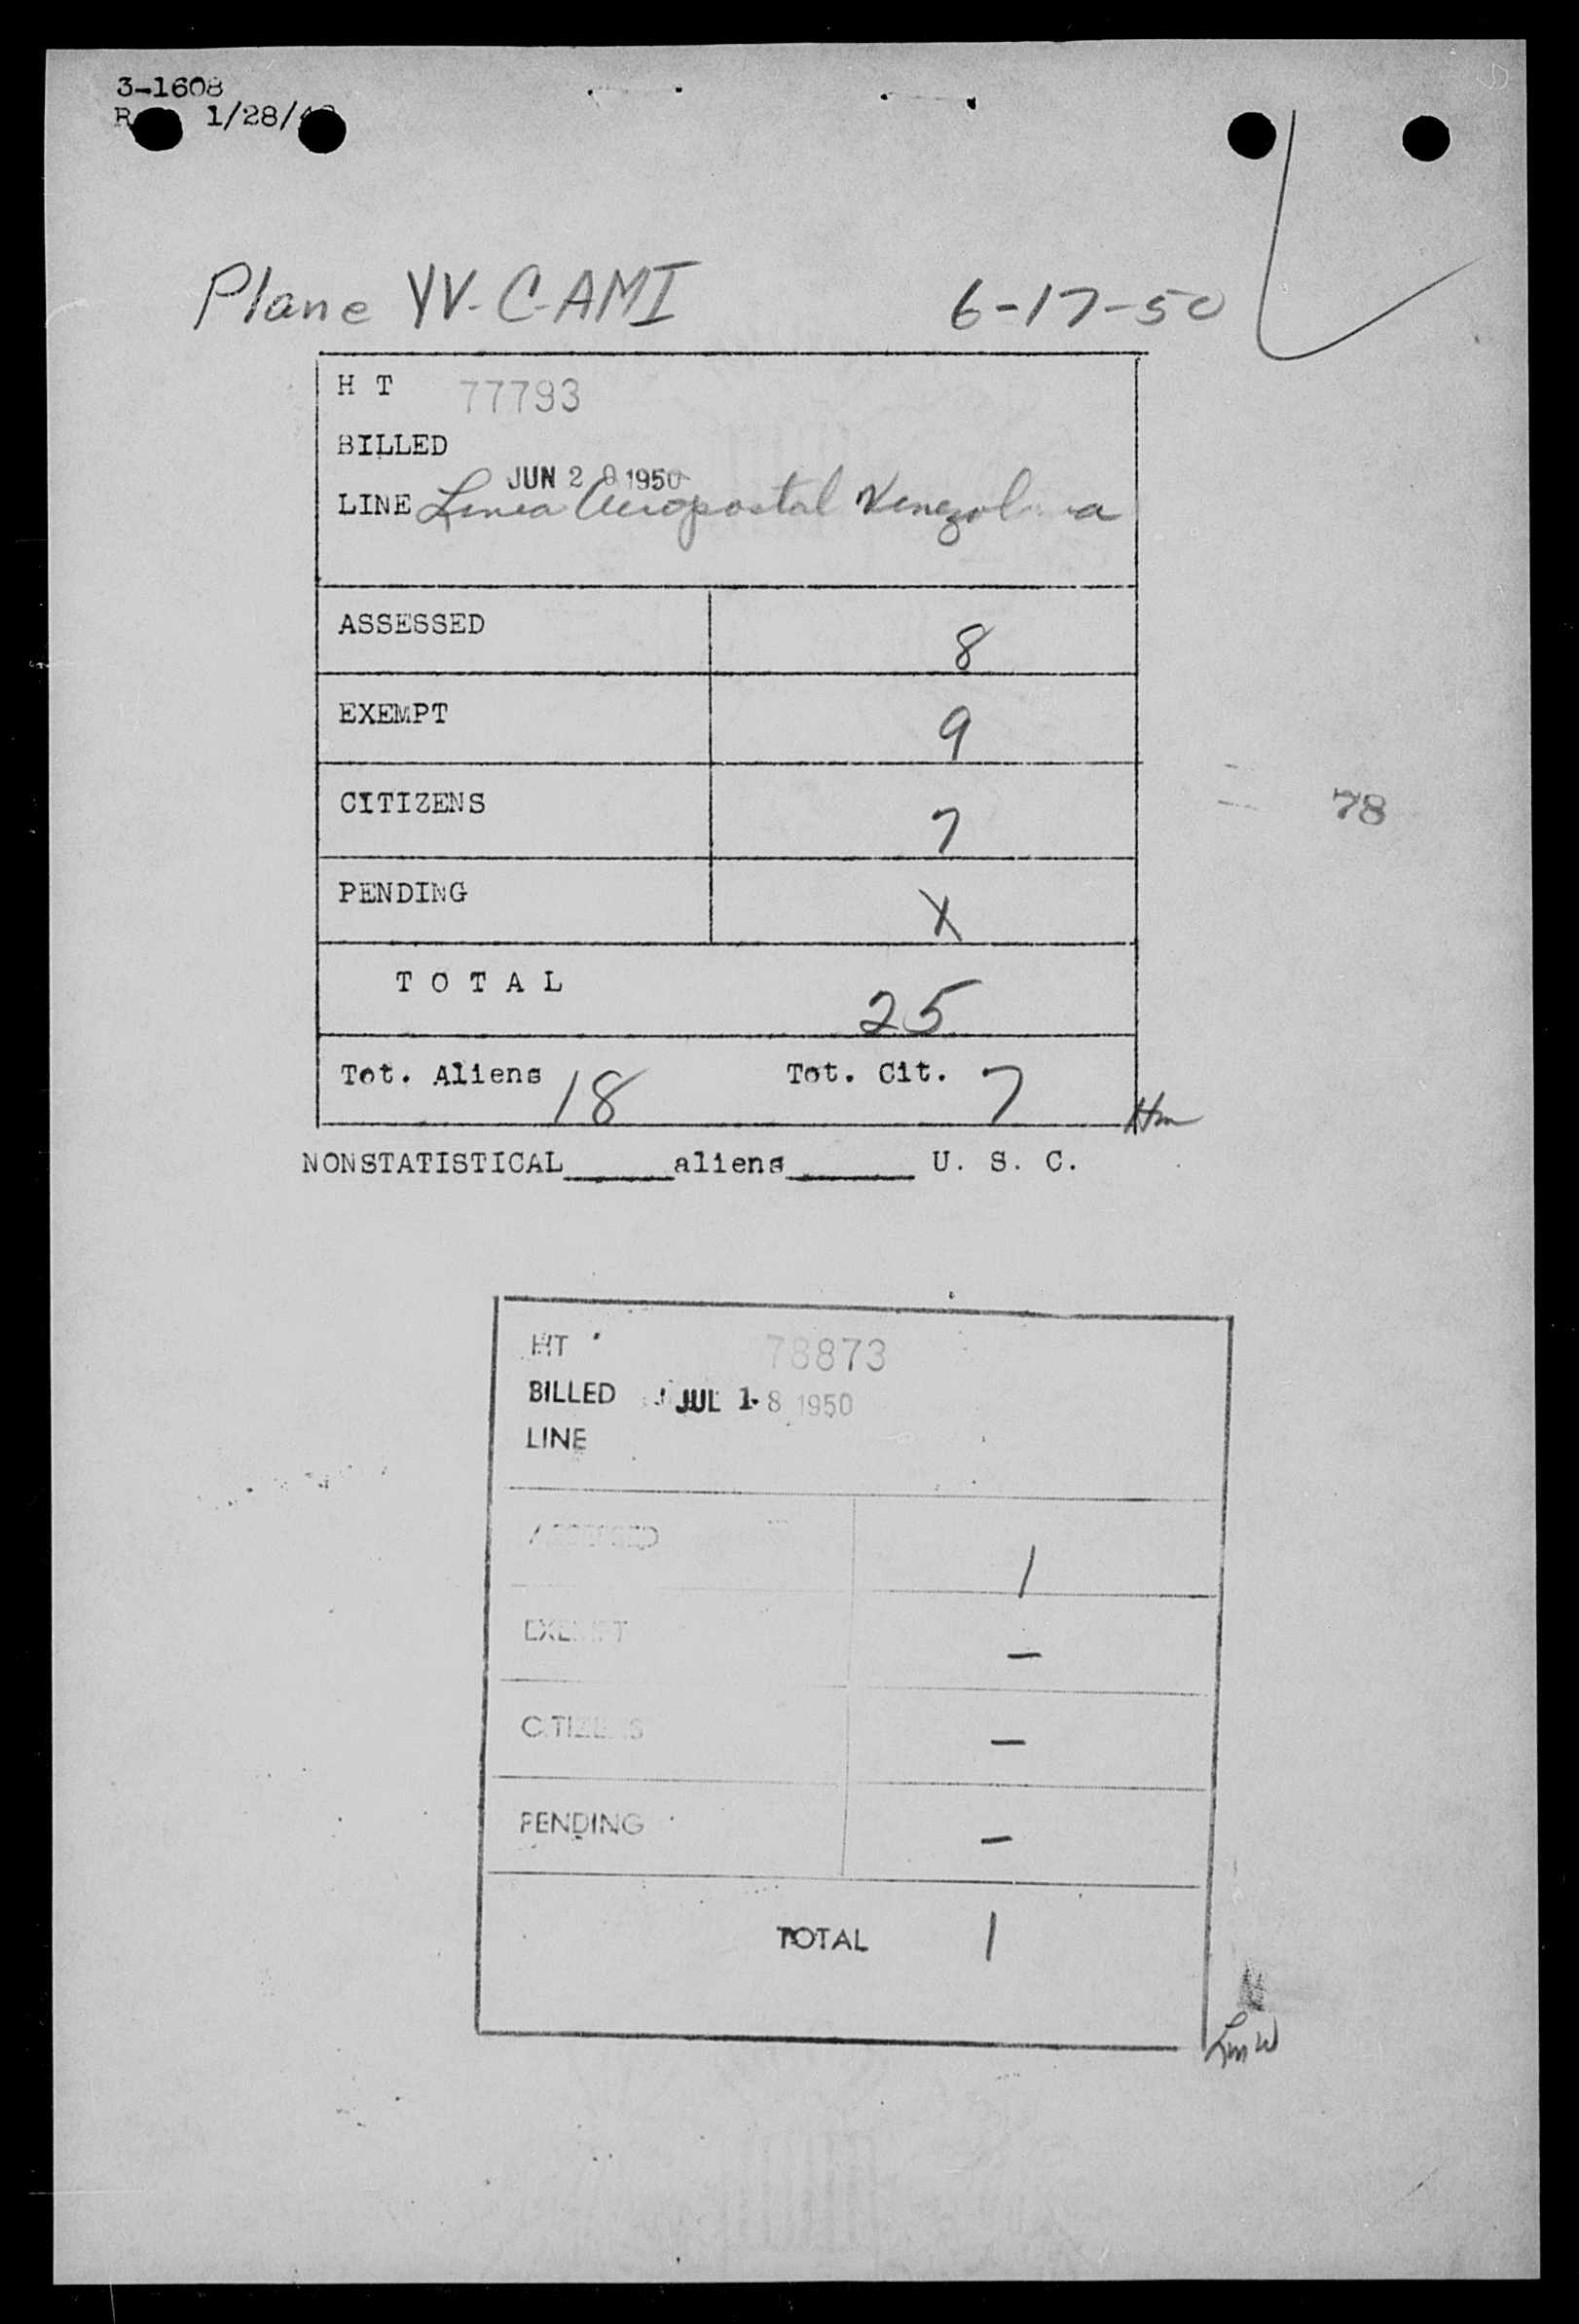 3-1608
1/28/
Plane YV-C-AMI 6-17-50
H T 77793
BILLED
JUN 2 8 1950
LINE Linea Aeropostal Venezolana
ASSESSED 8
EXEMPT 9
CITIZENS 7
78
PENDING X
T O T A L 25
Tot. Aliens 18 Tot. Cit. 7
Hm
NONSTATISTICAL aliens U. S. C.
HT 78873
BILLED JUL 18 1950
LINE
ASSESSED 1
EXEMPT –
CITIZENS –
PENDING –
TOTAL 1
LMW